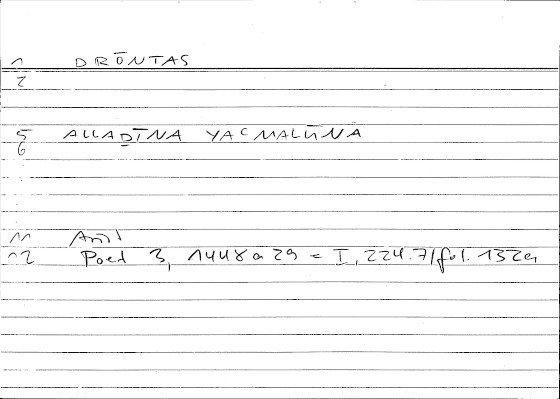 1 DRŌNTAS
2
5 ALLAḎĪNA YAʿMALŪNA
6
11 Arist
12 Poet 3, 1448a 29 = I, 224.7/fol. 132a